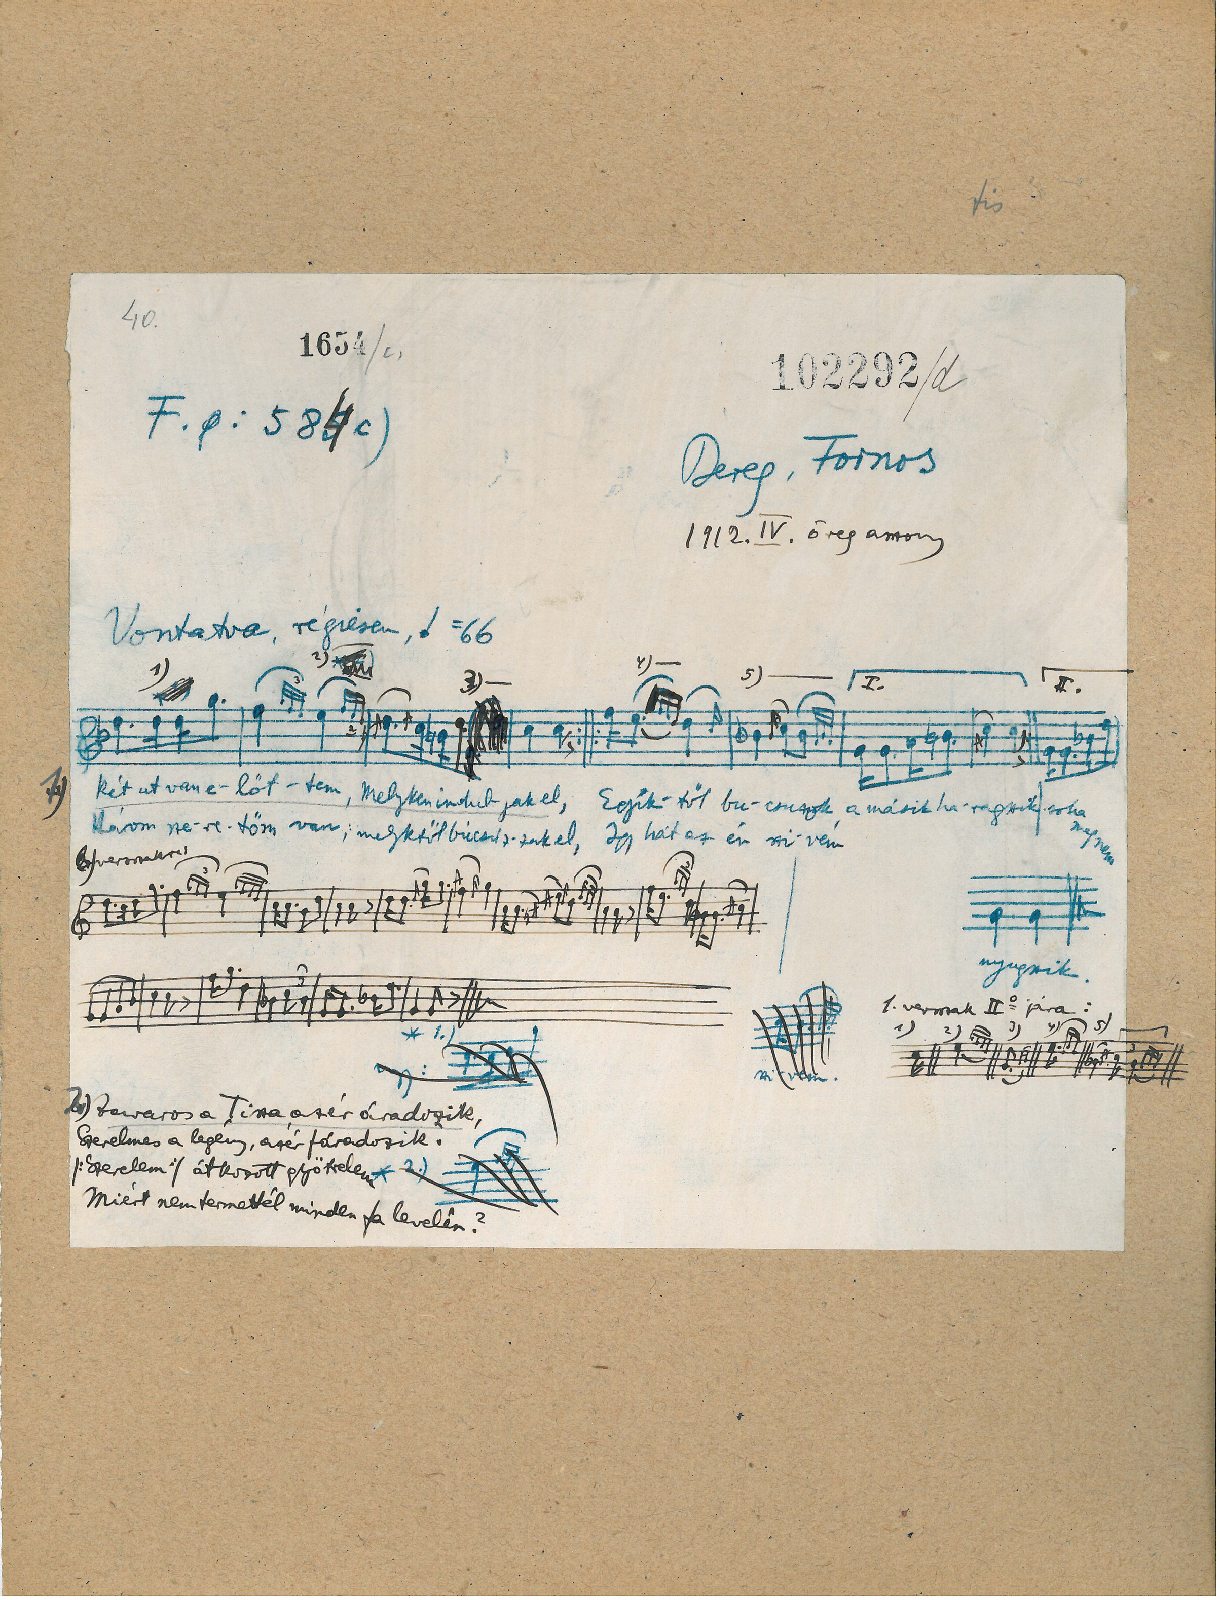 fis
40.
1654/c,
102292/d
F. φ: 584 c)
Bereg, Fornos
1912. IV. öregasszony
Vontatva, régiesen, ♩ =66
1) 2) 3) 4) 5) I. II.
1.) Két ut van e-lőt-tem, Melyken indul-jak el, Egyik-től bu-csuzok a másik ha-ragszik soha
meg nem
Három sze-re-tőm van, melyktől búcsúz-zak el, Így hát az én szi-vém
nyugszik.
2.) versszakra:
1. versszak IIº jára:
1) 2) 3) 4) 5)
szi-vém.
* 1.)
2.) Zavaros a Tisza azér áradozik,
Szerelmes a legény, azér fáradozik.
/:Szerelem:/ átkozott gyötrelem
* 2.)
Miért nem termettél minden fa levelén?